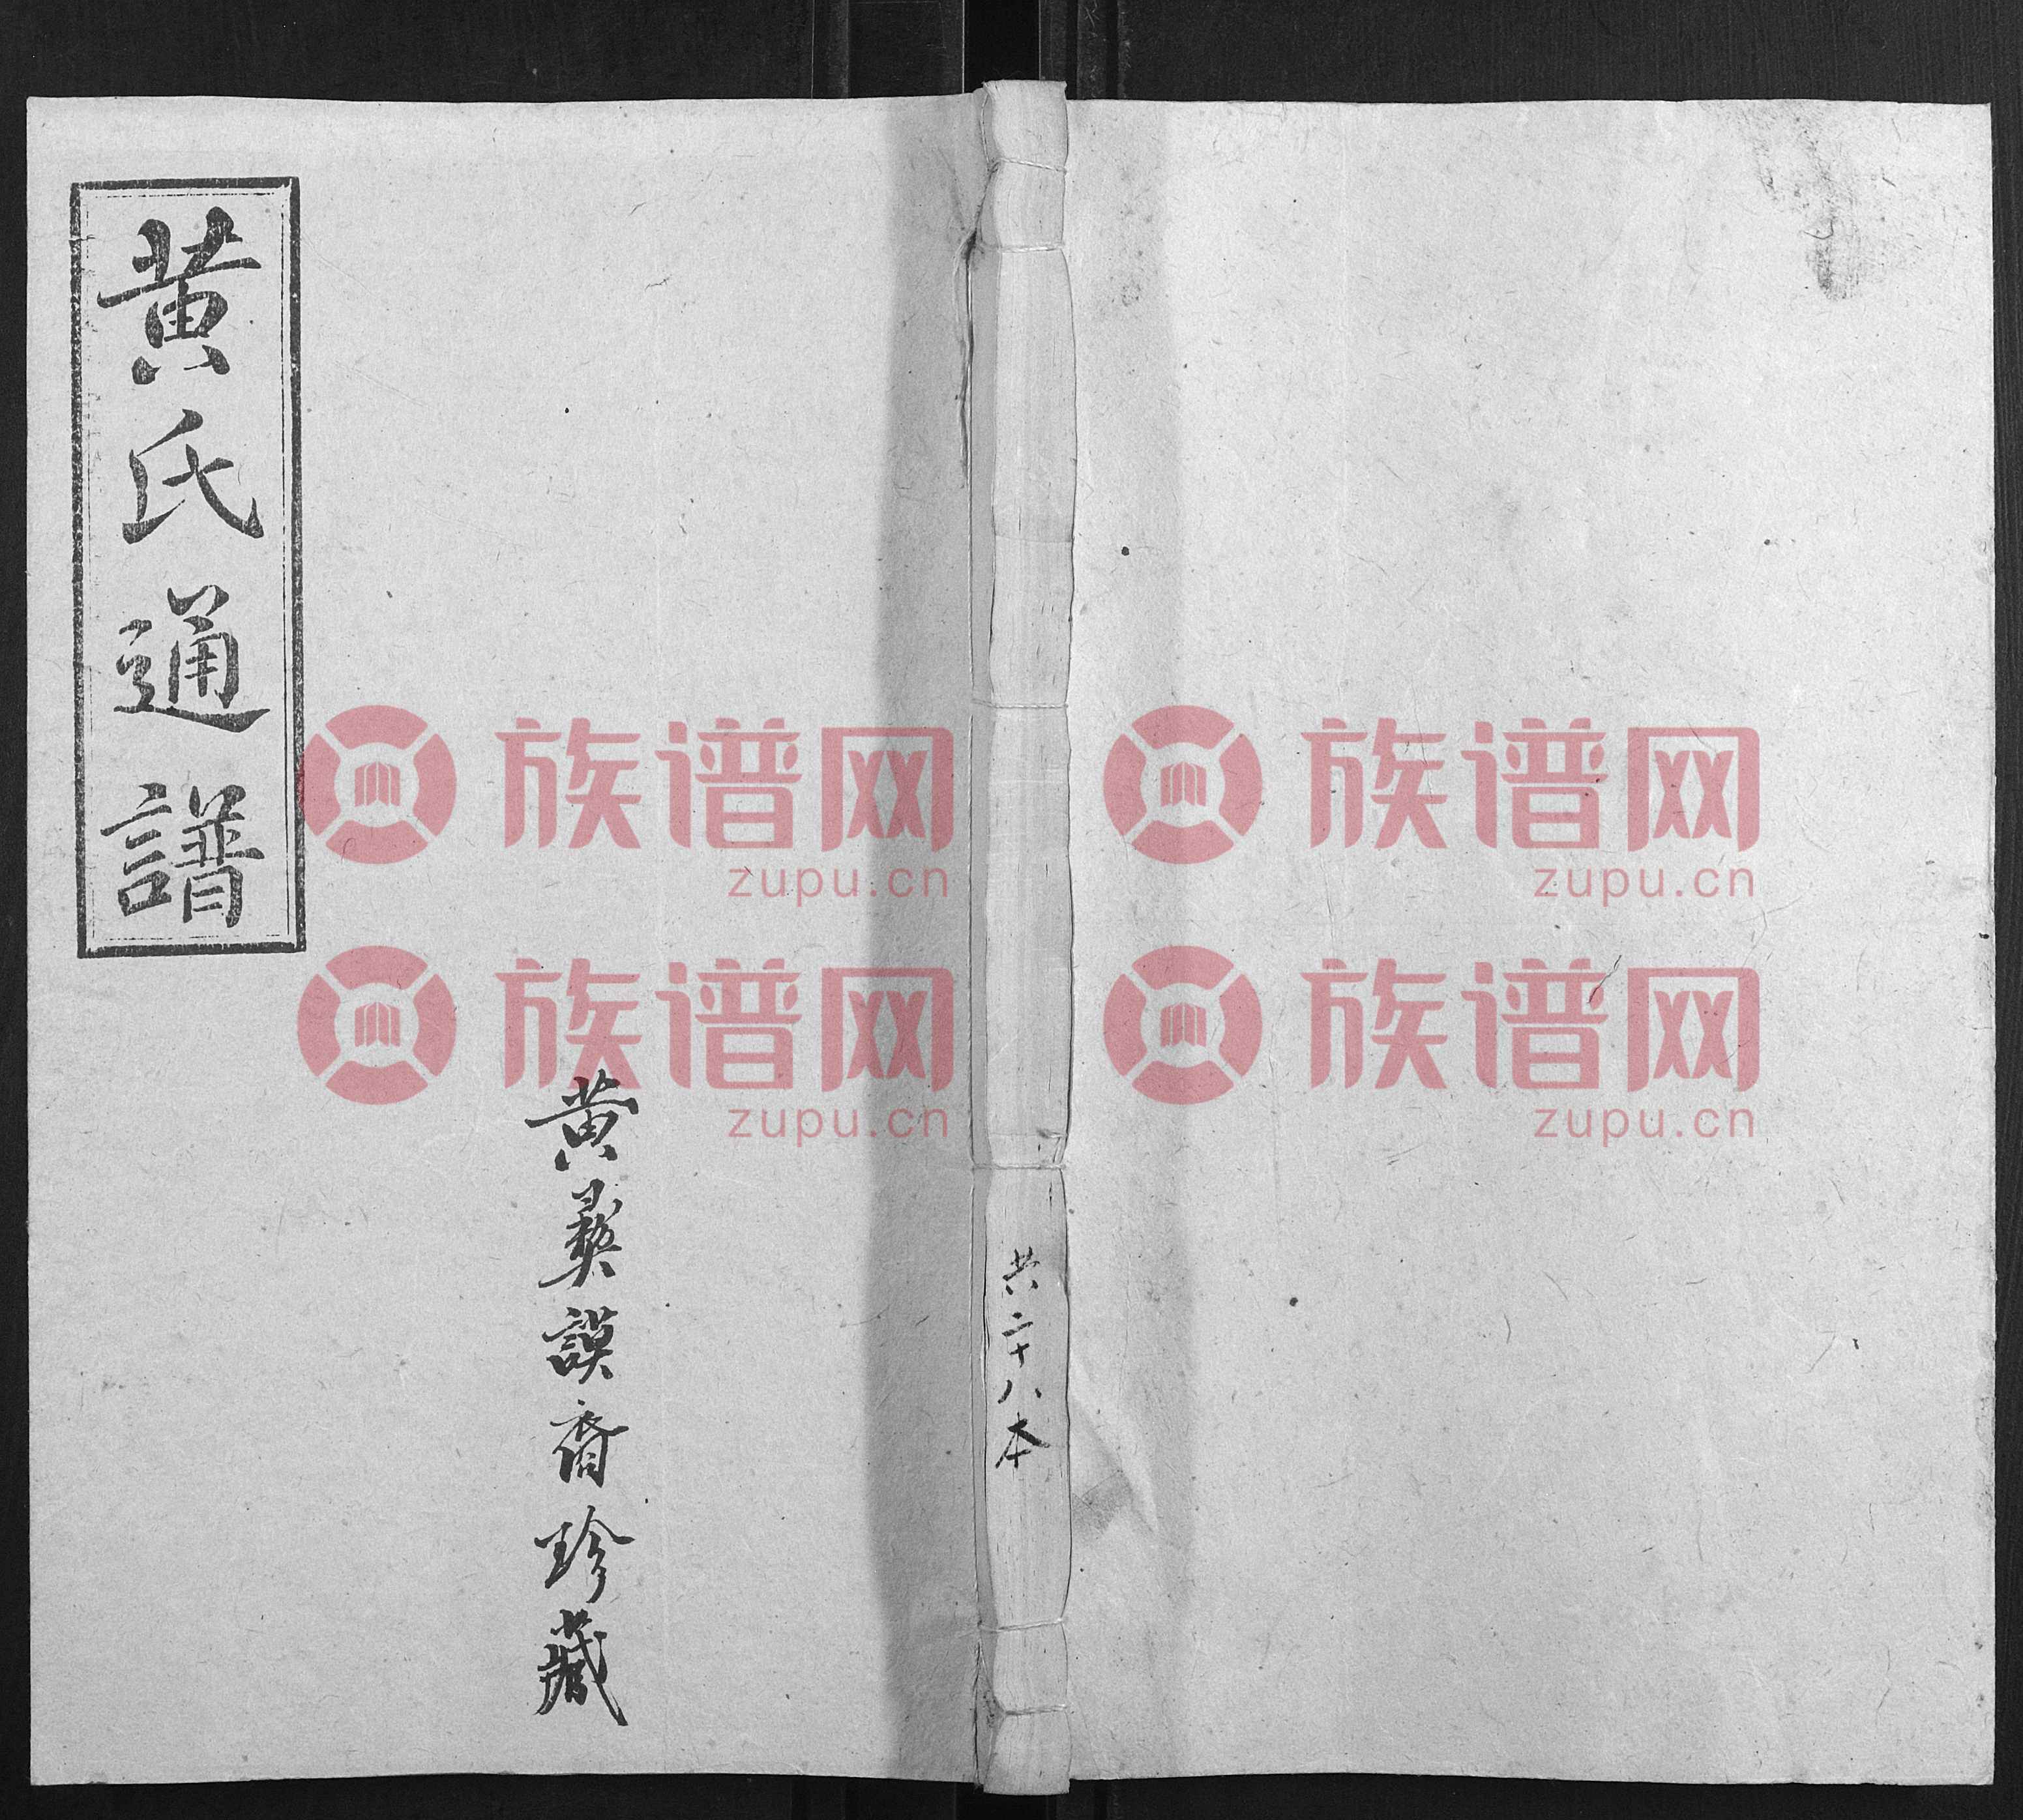 黄氏通譜
黄彞謨齋珍藏
共二十八本
族谱网
zupu.cn
族谱网
zupu.cn
族谱网
zupu.cn
族谱网
zupu.cn